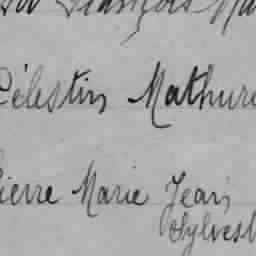 François
Célestin Mathur
Pierre Marie Jean
Sylvest